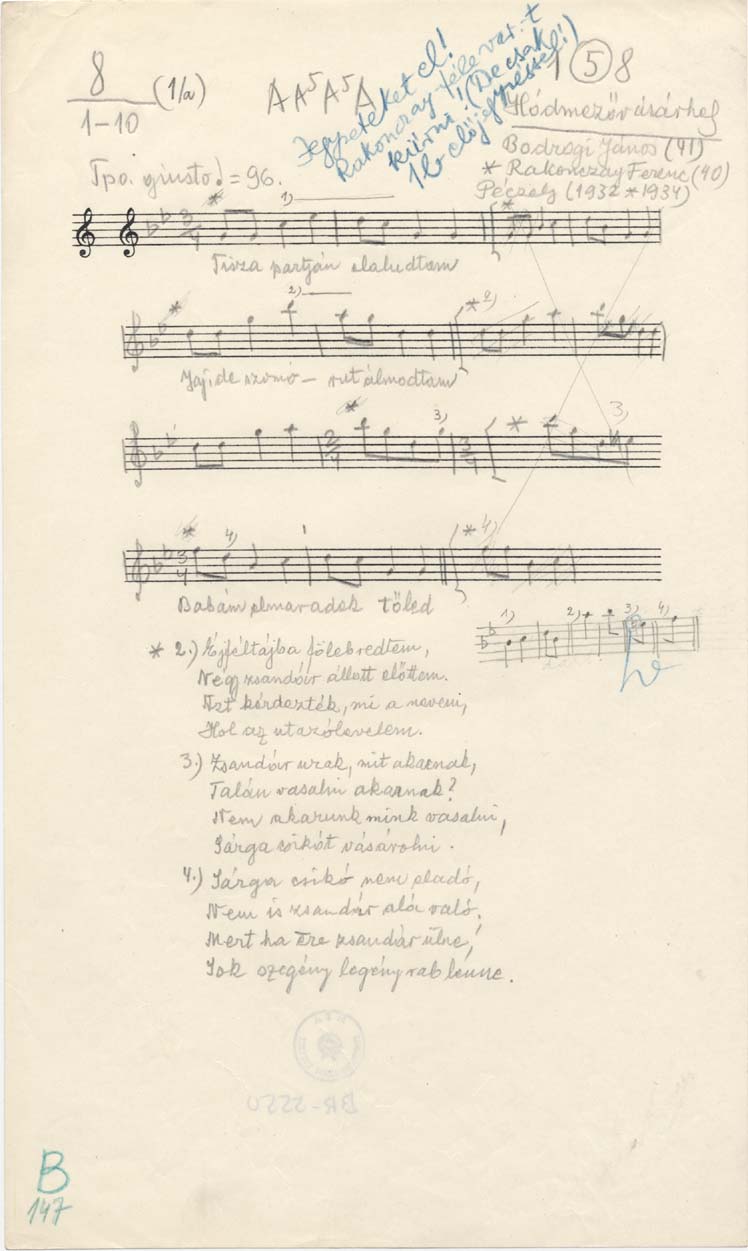 8
1-10
(1/a)
A A⁵ A⁵ A
Jegyzeteket el!
Rakonczay-féle var.-t
kiírni! (De csak
1 b előjegyzéssel!)
1 (5) 8
Hódmezővásárhely
Bodrogi János (41)
* Rakonczay Ferenc (40)
Péczely (1932 * 1934)
Tpo. giusto ♩ = 96.
* 1) *
3/4
Tisza partján elaludtam
* 2) * 2)
Jaj, de szomo– rut álmodtam
* 3) * 3)
2/4 3/4
* 4) * 4)
3/4
Babám elmaradok tőled
1) 2) 3) 4)
* 2.) Éjféltájba fölebredtem,
Négy zsandár állott előttem.
Azt kérdezték, mi a nevem,
Hol az utazólevelem.
3.) Zsandár urak, mit akarnak,
Talán vasalni akarnak?
Nem akarunk mink vasalni,
Sárga csikót vásárolni.
4.) Sárga csikó nem eladó,
Nem is zsandár alá való.
Mert ha erre zsandár ülne,
Sok szegény legény rab lenne.
BR-2220
B
147